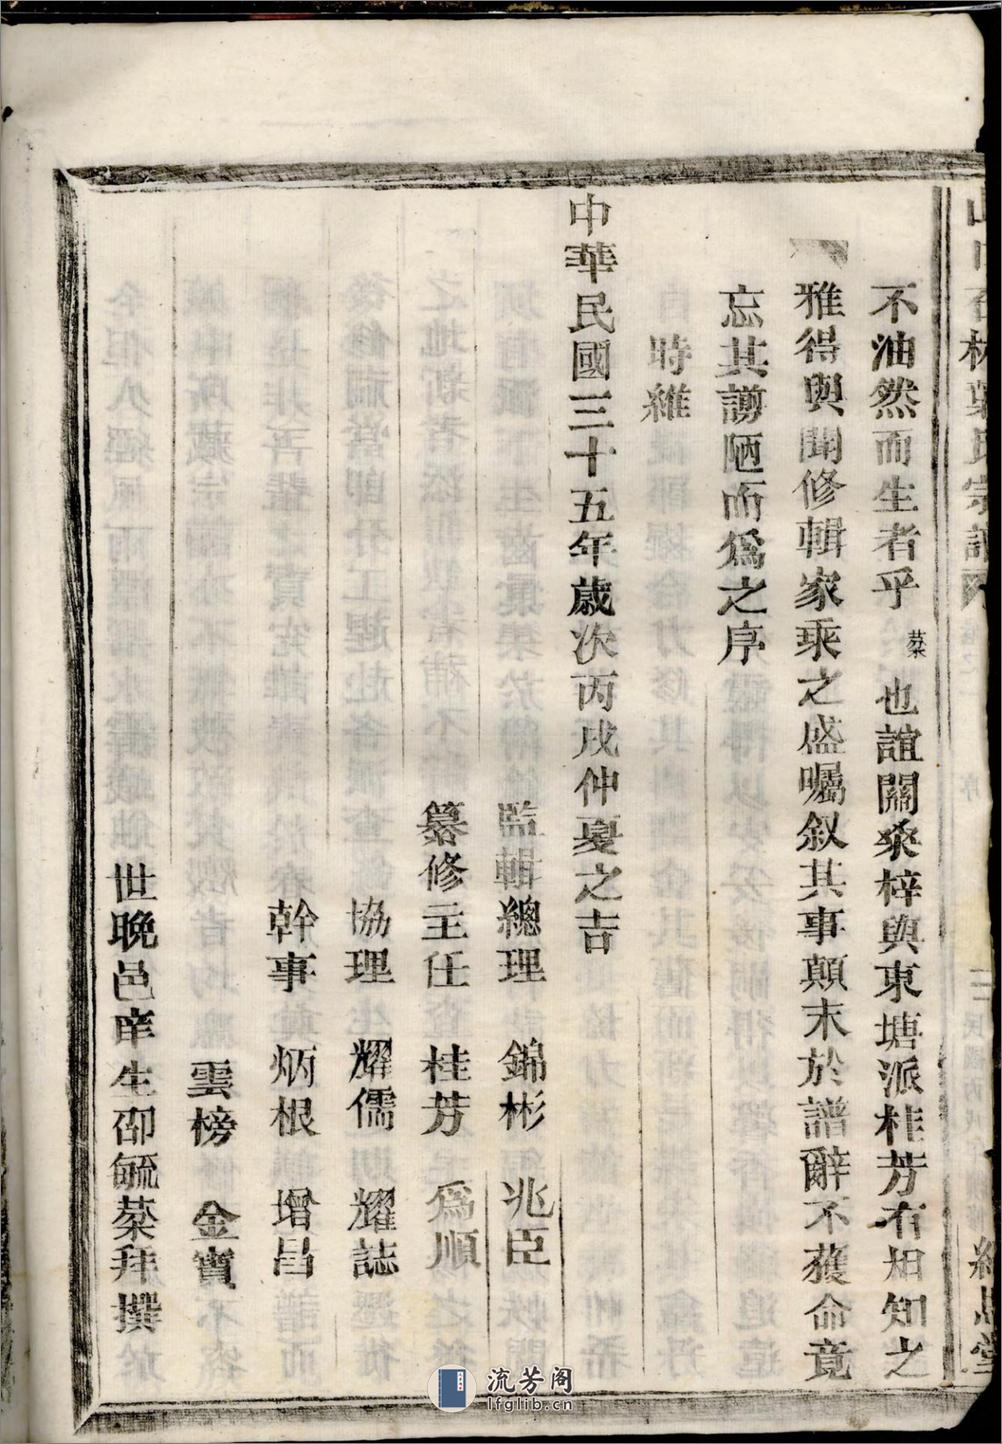 不油然而生者乎蔡也誼關桑梓與東塘派桂芳有相知之
雅得與聞修輯家乘之盛囑叙其事顛末於譜辭不獲命竟
忘其謭陋而為之序
時維
中華民國三十五年歲次丙戌仲夏之吉
監輯總理 錦彬 兆臣
纂修主任 桂芳 為順
協理 耀儒 耀誌
幹事 炳根 增昌
雲榜 金寶
世晚邑庠生邵毓蔡拜撰
流芳阁
lfglib.cn